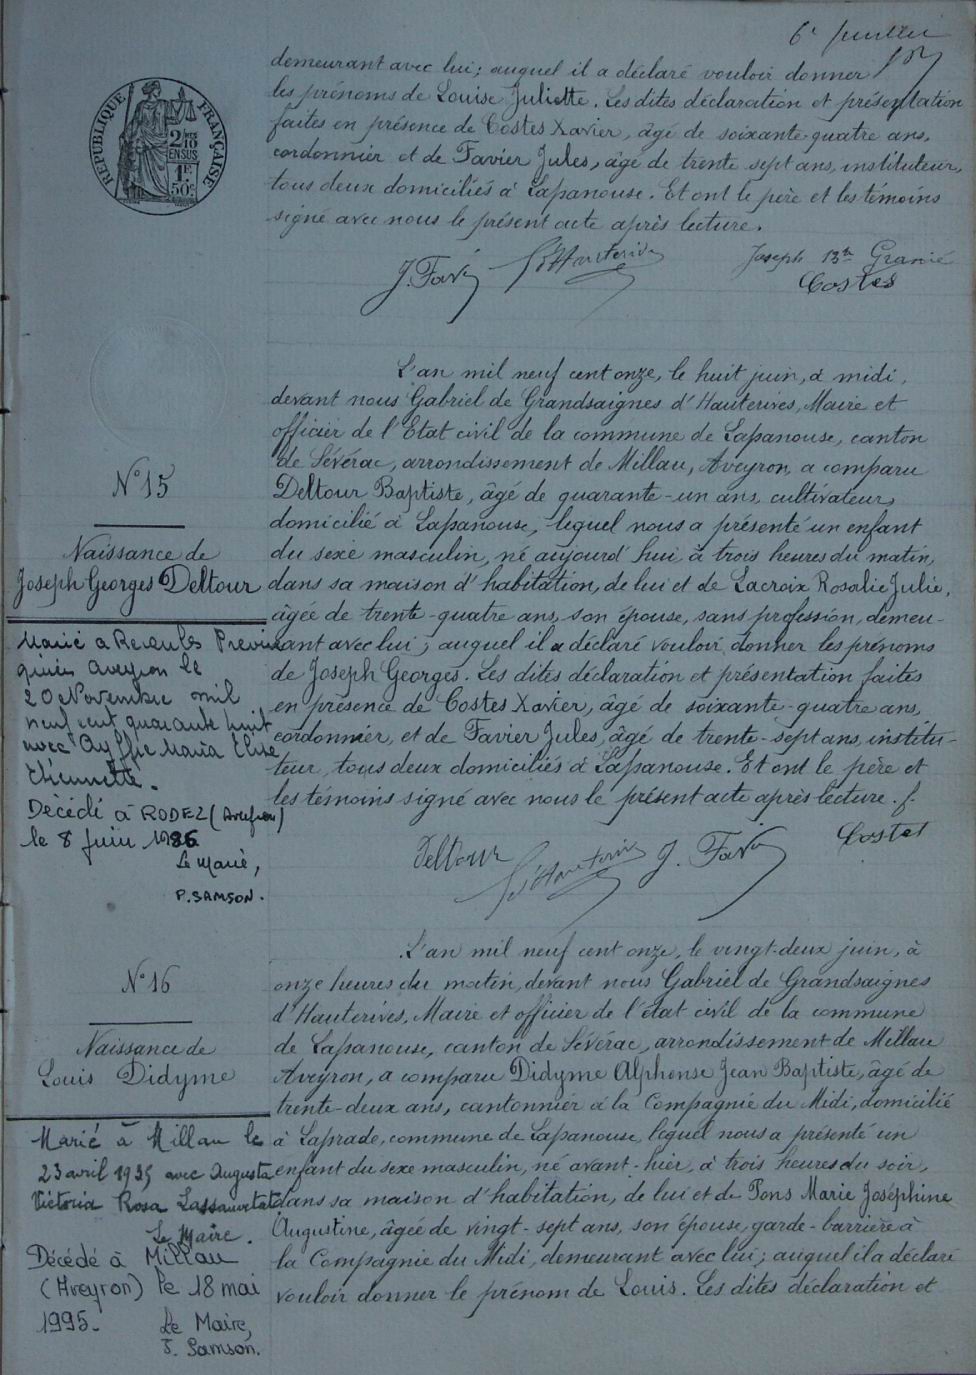 6e feuillet
demeurant avec lui; auquel il a déclaré vouloir donner
les prénoms de Louise Juliette. Les dites déclaration et présentation
faites en présence de Costes Xavier, âgé de soixante-quatre ans,
cordonnier et de Favier Jules, âgé de trente sept ans, instituteur,
tous deux domiciliés à Lapanouse. Et ont le père et les témoins
signé avec nous le présent acte après lecture.
RÉPUBLIQUE FRANÇAISE
2/10 EN SUS
1F 50c
J. Favier d'Hauterives Joseph Bte Granié
Costes
L'an mil neuf cent onze, le huit juin, à midi,
devant nous Gabriel de Grandsaignes d'Hauterives, Maire et
officier de l'Etat civil de la commune de Lapanouse, canton
de Sévérac, arrondissement de Millau, Aveyron, a comparu
Deltour Baptiste, âgé de quarante-un ans, cultivateur,
domicilié à Lapanouse, lequel nous a présenté un enfant
du sexe masculin, né aujourd'hui à trois heures du matin,
dans sa maison d'habitation, de lui et de Lacroix Rosalie Julie,
âgée de trente-quatre ans, son épouse, sans profession, demeu-
rant avec lui; auquel il a déclaré vouloir donner les prénoms
de Joseph Georges. Les dites déclaration et présentation faites
en présence de Costes Xavier, âgé de soixante-quatre ans,
cordonnier, et de Favier Jules, âgé de trente-sept ans, institu-
teur, tous deux domiciliés à Lapanouse. Et ont le père et
les témoins signé avec nous le présent acte après lecture.
Deltour d'Hauterives J. Favier Costes
N° 15
Naissance de
Joseph Georges Deltour
Marié à Recoules Prévin
quières Aveyron le
20 Novembre mil
neuf cent quarante huit
avec Ayffre Maria Elise
Etiennette.
Décédé à RODEZ (Aveyron)
le 8 juin 1986
Le Maire,
P. SAMSON.
L'an mil neuf cent onze, le vingt-deux juin, à
onze heures du matin, devant nous Gabriel de Grandsaignes
d'Hauterives, Maire et officier de l'état civil de la commune
de Lapanouse, canton de Sévérac, arrondissement de Millau
Aveyron, a comparu Didyme Alphonse Jean Baptiste, âgé de
trente-deux ans, cantonnier à la Compagnie du Midi, domicilié
à Laprade, commune de Lapanouse, lequel nous a présenté un
enfant du sexe masculin, né avant-hier, à trois heures du soir,
dans sa maison d'habitation, de lui et de Pons Marie Joséphine
Augustine, âgée de vingt-sept ans, son épouse, garde-barrière à
la Compagnie du Midi, demeurant avec lui; auquel il a déclaré
vouloir donner le prénom de Louis. Les dites déclaration et
N° 16
Naissance de
Louis Didyme
Marié à Millau le
23 avril 1935 avec Augusta
Victoria Rosa Lassauvetat
Le Maire.
Décédé à Millau
(Aveyron) le 18 mai
1995.
Le Maire,
P. Samson.